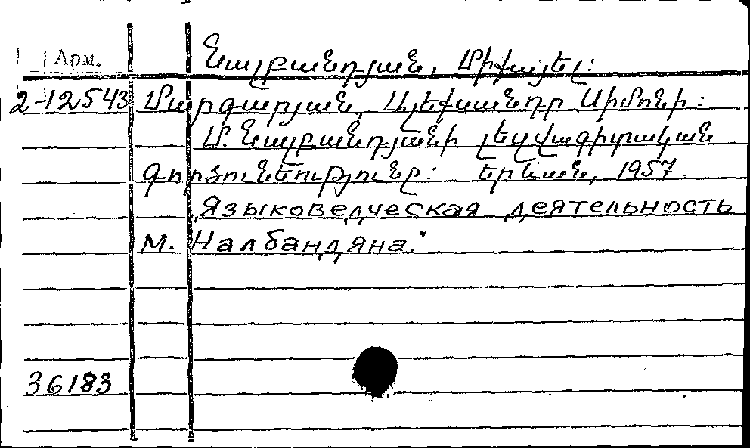 Арм.
Նալբանդյան, Միքայել:
2-12543 Մարգարյան, Ալեքսանդր Սիմոնի:
Մ. Նալբանդյանի լեզվագիտական
գործունեությունը: Երևան, 1957
Языковедческая деятельность
М. Налбандяна.
36183